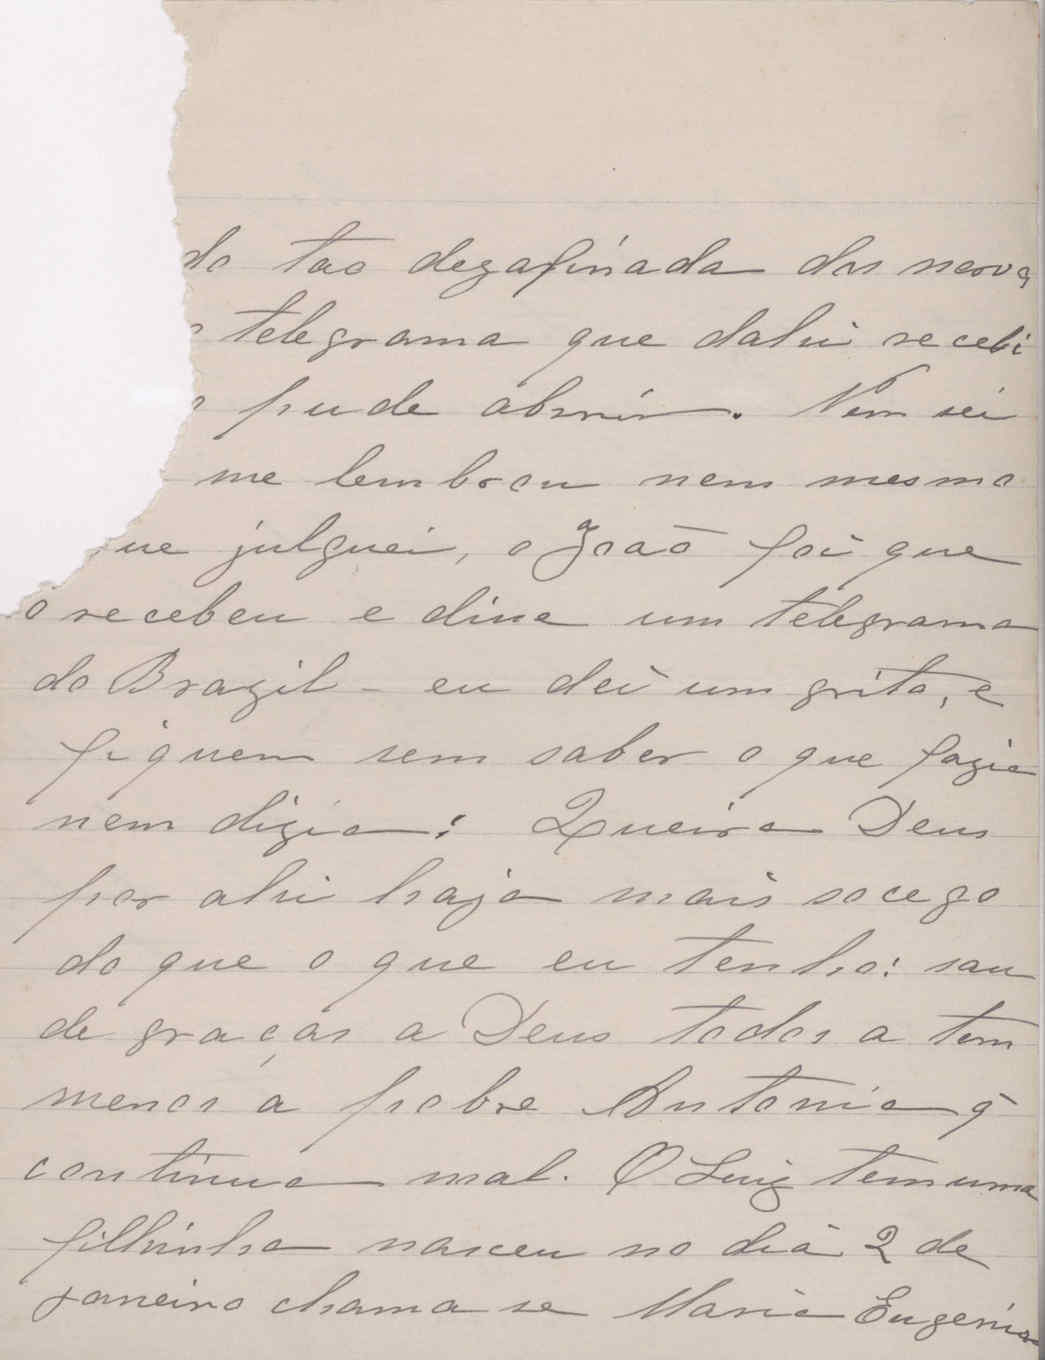 do tao dezafinada dos nervos
o telegrama que dahi recebi
o pude abrir. Nem sei
me lembrou nem mesmo
que julguei, o João foi que
o recebeu e disse um telegrama
do Brazil - eu dei um grito, e
fiquem sem saber o que fazia
nem dizia: Queira Deus
por ahi haja mais socego
do que o que eu tenho: sau
de graças a Deus todos a tem
menos a pobre Antonia q̃
continua mal. O Luiz tem uma
filhinha nasceu no dia 2 de
janeiro chama se Maria Eugenia